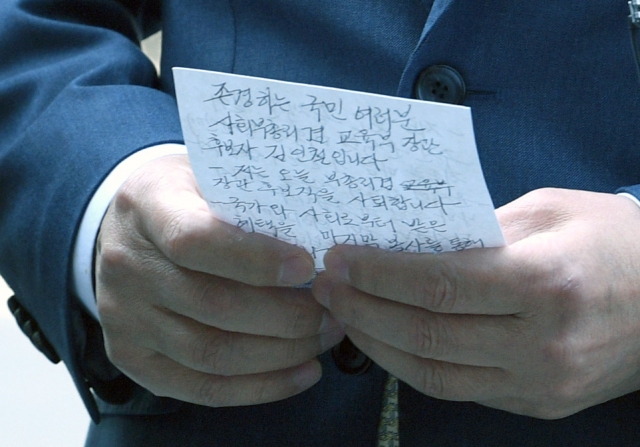 존경하는 국민 여러분
사회부총리 겸 교육부 장관
후보자 김인철입니다
- 저는 오늘 부총리겸 교육부
장관 후보직을 사퇴합니다
- 국가와 사회로부터 받은
혜택을 마지막 봉사를 통해